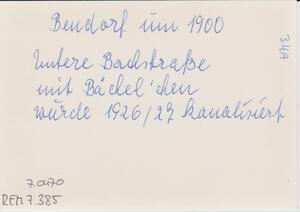 Bendorf um 1900
34A
Untere Bachstraße
mit Bächel'chen
wurde 1926/27 kanalisiert
7.0.70
REM 7.385